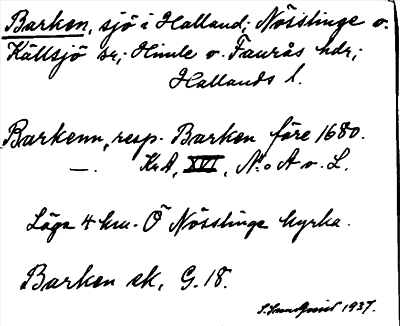 Barken, sjö i Halland; Nösslinge o.
Källsjö sr; Himle o. Faurås hdr;
Hallands l.
Barkenn, resp. Barken före 1680.
—. KrA, XVI, N:o A o. L.
Läge 4 km. Ö Nösslinge kyrka.
Barken ek, G. 18.
1937.